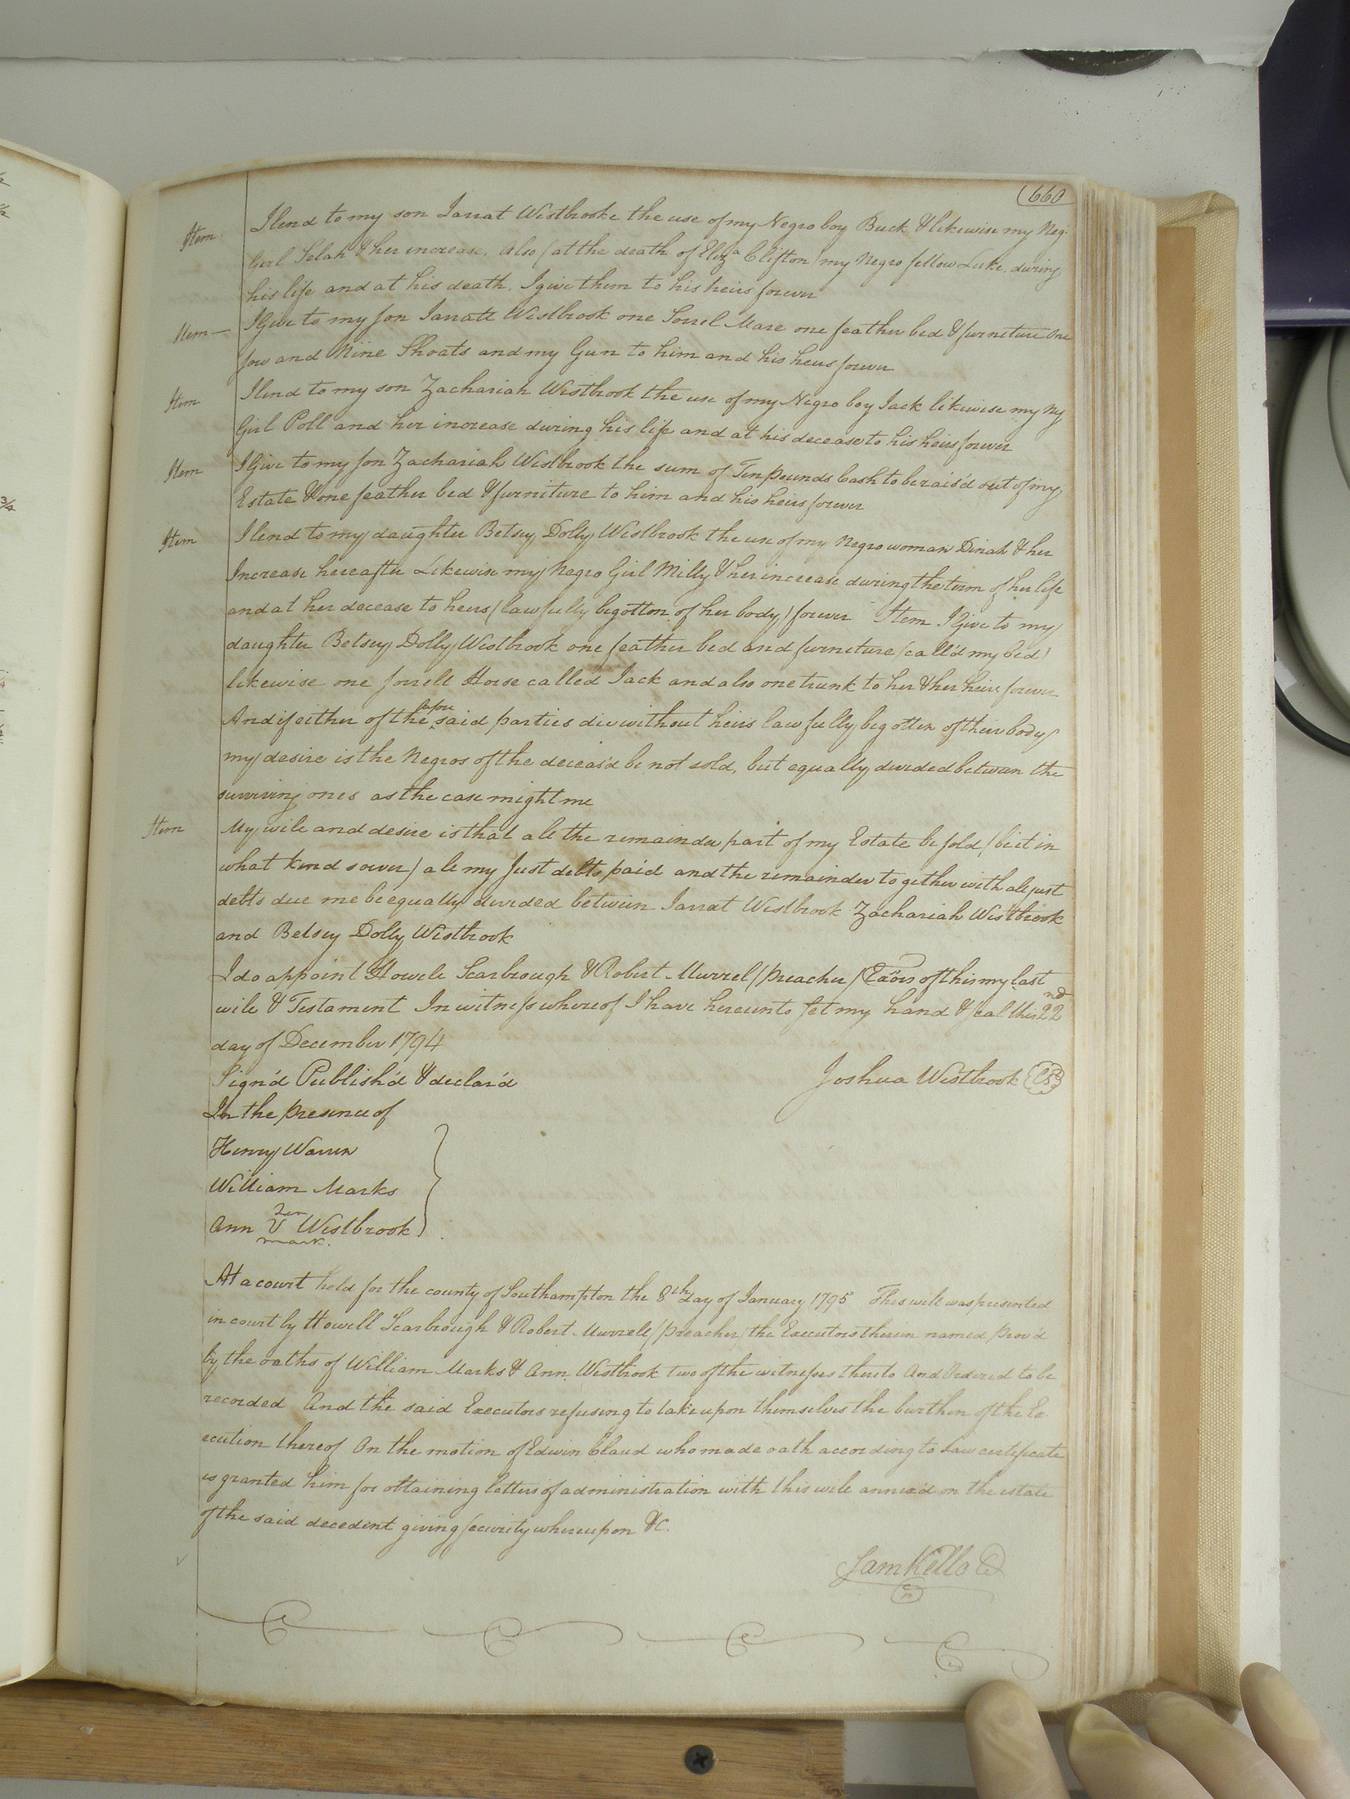 660
Item I lend to my son Jarrat Westbrook the use of my Negro boy Buck & likewise my Neg.
Girl Selah & her increase. Also (at the death of Eliza Clifton) my Negro fellow Luke. during
his life and at his death. I give them to his heirs forever
Item— I Give to my son Jarratt Westbrook one Sorrel Mare one feather bed & furniture one
sow and Nine Shoats and my Gun to him and his heirs forever
Item I lend to my son Zachariah Westbrook the use of my Negro boy Jack likewise my Ng
Girl Poll and her increase during his life and at his decease to his heirs forever
Item I Give to my son Zachariah Westbrook the sum of Ten pounds Cash to be rais'd out of my
Estate & one feather bed & furniture to him and his heirs forever
Item I lend to my daughter Betsey Dolly Westbrook the use of my Negro woman Dinah & her
Increase hereafter Likewise my Negro Girl Milly & her increase during the term of her life
and at her decease to heirs (lawfully begotton of her body) forever Item I Give to my
daughter Betsey Dolly Westbrook one feather bed and furneture (call'd my bed)
likewise one sorrell Horse called Jack and also one trunk to her & her heirs forever
And if either of the afore said parties die without heirs lawfully begotten of their body
my desire is the Negros of the deceas'd be not sold, but equally divided between the
surviving ones as the case might me
Item My will and desire is that all the remainder part of my Estate be sold (be it in
what kind soever) all my Just debts paid and the remainder together with all just
debts due me be equally divided between Jarrat Westbrook Zachariah Westbrook
and Betsey Dolly Westbrook
I do appoint Howell Scarbrough & Robert Murrel (preacher) Exors of this my last
will & Testament In witness whereof I have hereunto set my hand & seal this 22nd
day of December 1794
Sign'd Publish'd & declar'd Joshua Westbrook
In the presence of
Henry Warren
William Marks
Ann her Westbrook
mark.
At a court held for the county of Southampton the 8th day of January 1795 This will was presented
in court by Howell Scarbrough & Robert Murrell (preacher) the Executors therein named prov'd
by the oaths of William Marks & Ann Westbrook two of the witnesses thereto And Ordered to be
recorded And the said Executors refusing to take upon themselves the burthen of the Ex
ecution thereof On the motion of Edwin Claud who made oath according to Law certificate
is granted him for obtaining letters of administration with this will annex'd on the estate
of the said decedent giving security whereupon &c.
Sam Kello